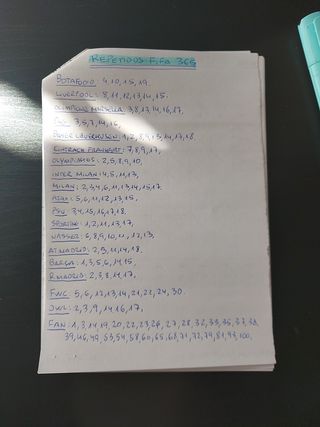 REPETIDOS FIFA 365
BOTAFOGO: 4,10,15,19.
LIVERPOOL: 8,11,12,13,14,15.
OLYMPIQUE MARSELLA: 3,8,13,14,16,17.
3,5,7,14,16,
BAYER LEVERKUSEN: 1,2,8,9,13,14,17,18.
EINTRACH FRANKFURT: 7,8,9,17,
OLYMPIACOS: 2,5,8,9,10.
INTER MILAN: 4,5,11,13,
MILAN: 2,3,4,6,11,13,14,15,17.
5,6,11,12,13,15.
PSV: 3,4,15,16,17,18.
SPORTING: 1,2,11,13,17,
NASSR: 6,8,9,10,11, 12,13,
AT.MADRID: 2,9,11,14,18.
BARÇA: 1,3,5,6,14,15.
R.MADRID: 2,3,8,11,17.
FWC: 5,6,12,13,14,21,22,24,30.
2,3,9,14,16,17.
FAN: 1,3,14,19,20,22,23,26,27,28,32,33,35,37,38,
39,46,49,53,54,58,60,65,68,71,72,79,81,93,100.